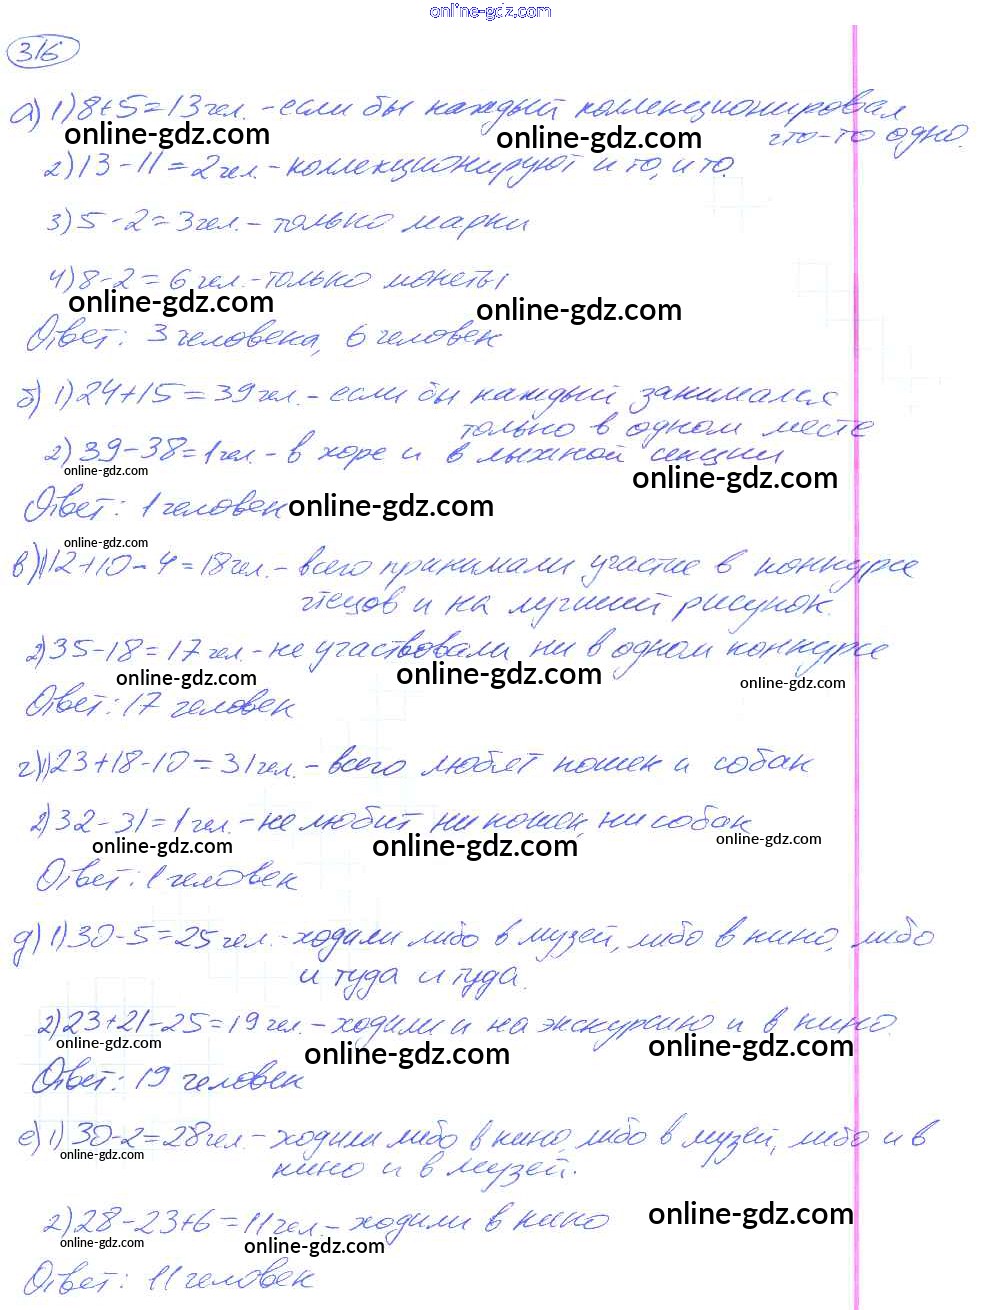 online-gdz.com
316
а) 1) 8+5=13 чел. - если бы каждый коллекционировал
что-то одно.
online-gdz.com online-gdz.com
2) 13-11=2 чел. - коллекционируют и то, и то.
3) 5-2=3 чел. - только марки
4) 8-2=6 чел. - только монеты
online-gdz.com online-gdz.com
Ответ: 3 человека, 6 человек
б) 1) 24+15=39 чел. - если бы каждый занимался
только в одном месте
2) 39-38=1 чел - в хоре и в лыжной секции
online-gdz.com online-gdz.com
Ответ: 1 человек online-gdz.com
online-gdz.com
в) 1) 12+10-4=18 чел. - всего принимали участие в конкурсе
чтецов и на лучший рисунок.
2) 35-18=17 чел - не участвовали ни в одном конкурсе
online-gdz.com online-gdz.com online-gdz.com
Ответ: 17 человек
г) 1) 23+18-10=31 чел. - всего любят кошек и собак
2) 32-31=1 чел - не любит ни кошек, ни собак
online-gdz.com online-gdz.com online-gdz.com
Ответ: 1 человек
д) 1) 30-5=25 чел. - ходили либо в музей, либо в кино, либо
и туда и туда.
2) 23+21-25=19 чел. - ходили и на экскурсию и в кино.
online-gdz.com online-gdz.com online-gdz.com
Ответ: 19 человек
е) 1) 30-2=28 чел - ходили либо в кино, либо в музей, либо и в
online-gdz.com
кино и в музей.
2) 28-23+6=11 чел - ходили в кино
online-gdz.com
online-gdz.com online-gdz.com
Ответ: 11 человек